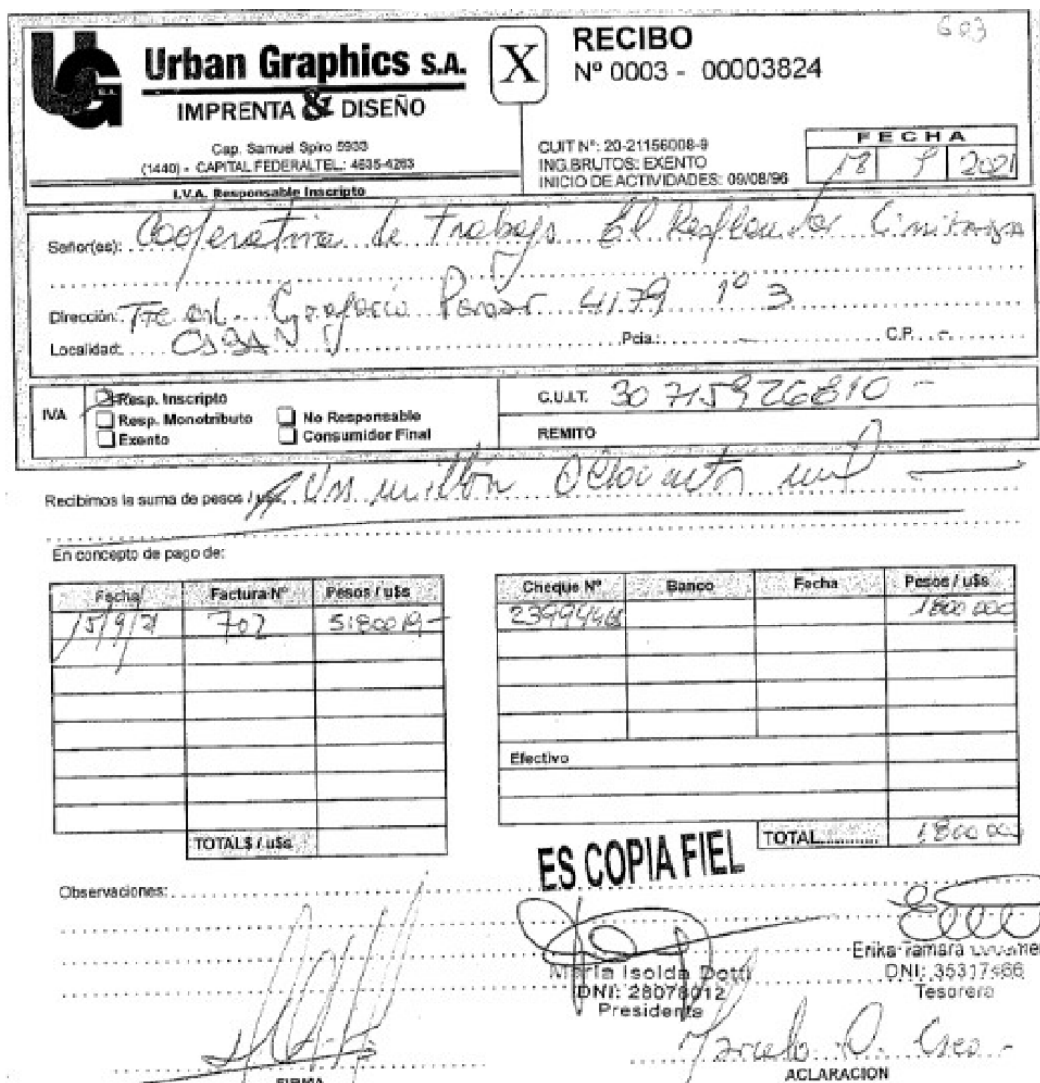 603
UG S.A.
Urban Graphics S.A.
IMPRENTA & DISEÑO
Cap. Samuel Spiro 5933
(1440) - CAPITAL FEDERAL TEL.: 4635-4263
I.V.A. Responsable Inscripto
X
RECIBO
Nº 0003 - 00003824
CUIT Nº: 20-21156008-9
ING.BRUTOS: EXENTO
INICIO DE ACTIVIDADES: 09/08/96
FECHA
18 9 2021
Señor(es): Cooperativa de Trabajo El Limitada
Dirección: Tte Gral. 4179 1º 3
Localidad: CABA Pcia.: - C.P. -
IVA
Resp. Inscripto
Resp. Monotributo
Exento
No Responsable
Consumidor Final
C.U.I.T. 30 715926810 -
REMITO
Recibimos la suma de pesos / u$s Un millón Ochocientos mil
En concepto de pago de:
Fecha Factura Nº Pesos / u$s
15/9/21 702 5180019-
TOTAL $ / u$s
Cheque Nº Banco Fecha Pesos / u$s
1800 000
Efectivo
TOTAL 1800 000
ES COPIA FIEL
Observaciones:
María Isolda Dotti
DNI: 28078012
Presidenta
Erika Tamara
DNI: 35317466
Tesorera
Marcelo O.
FIRMA
ACLARACION